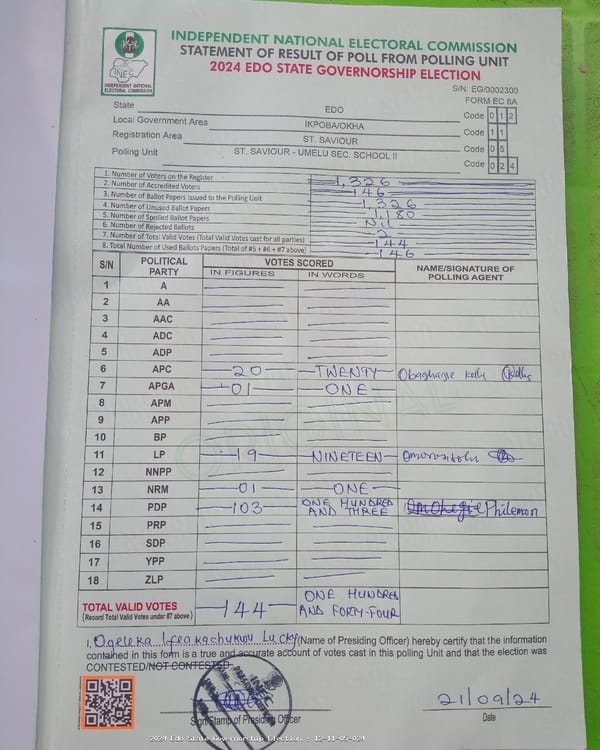 INDEPENDENT NATIONAL ELECTORAL COMMISSION
STATEMENT OF RESULT OF POLL FROM POLLING UNIT
2024 EDO STATE GOVERNORSHIP ELECTION
INEC
INDEPENDENT NATIONAL
ELECTORAL COMMISSION
S/N: EG/0002300
FORM EC 8A
State EDO Code 0 1 2
Local Government Area IKPOBA/OKHA Code 1 1
Registration Area ST. SAVIOUR Code 0 5
Polling Unit ST. SAVIOUR - UMELU SEC. SCHOOL II Code 0 2 4
1. Number of Voters on the Register 1,326
2. Number of Accredited Voters 146
3. Number of Ballot Papers Issued to the Polling Unit 1,326
4. Number of Unused Ballot Papers 1,180
5. Number of Spoiled Ballot Papers Nil
6. Number of Rejected Ballots 2
7. Number of Total Valid Votes (Total Valid Votes cast for all parties) 144
8. Total Number of Used Ballots Papers (Total of #5 + #6 + #7 above) 146
S/N POLITICAL PARTY VOTES SCORED NAME/SIGNATURE OF POLLING AGENT
IN FIGURES IN WORDS
1 A
2 AA
3 AAC
4 ADC
5 ADP
6 APC 20 TWENTY
7 APGA 01 ONE
8 APM
9 APP
10 BP
11 LP 19 NINETEEN
12 NNPP
13 NRM 01 ONE
14 PDP 103 ONE HUNDRED AND THREE Philemon
15 PRP
16 SDP
17 YPP
18 ZLP
TOTAL VALID VOTES 144 ONE HUNDRED AND FORTY-FOUR
(Record Total Valid Votes under #7 above)
I, Ogeleka Ifeakachukwu Lucky (Name of Presiding Officer) hereby certify that the information
contained in this form is a true and accurate account of votes cast in this polling Unit and that the election was
CONTESTED/NOT CONTESTED
INEC
21/09/24
Sign/Stamp of Presiding Officer Date
2024 Edo State Governorship Election : 12-11-05-024